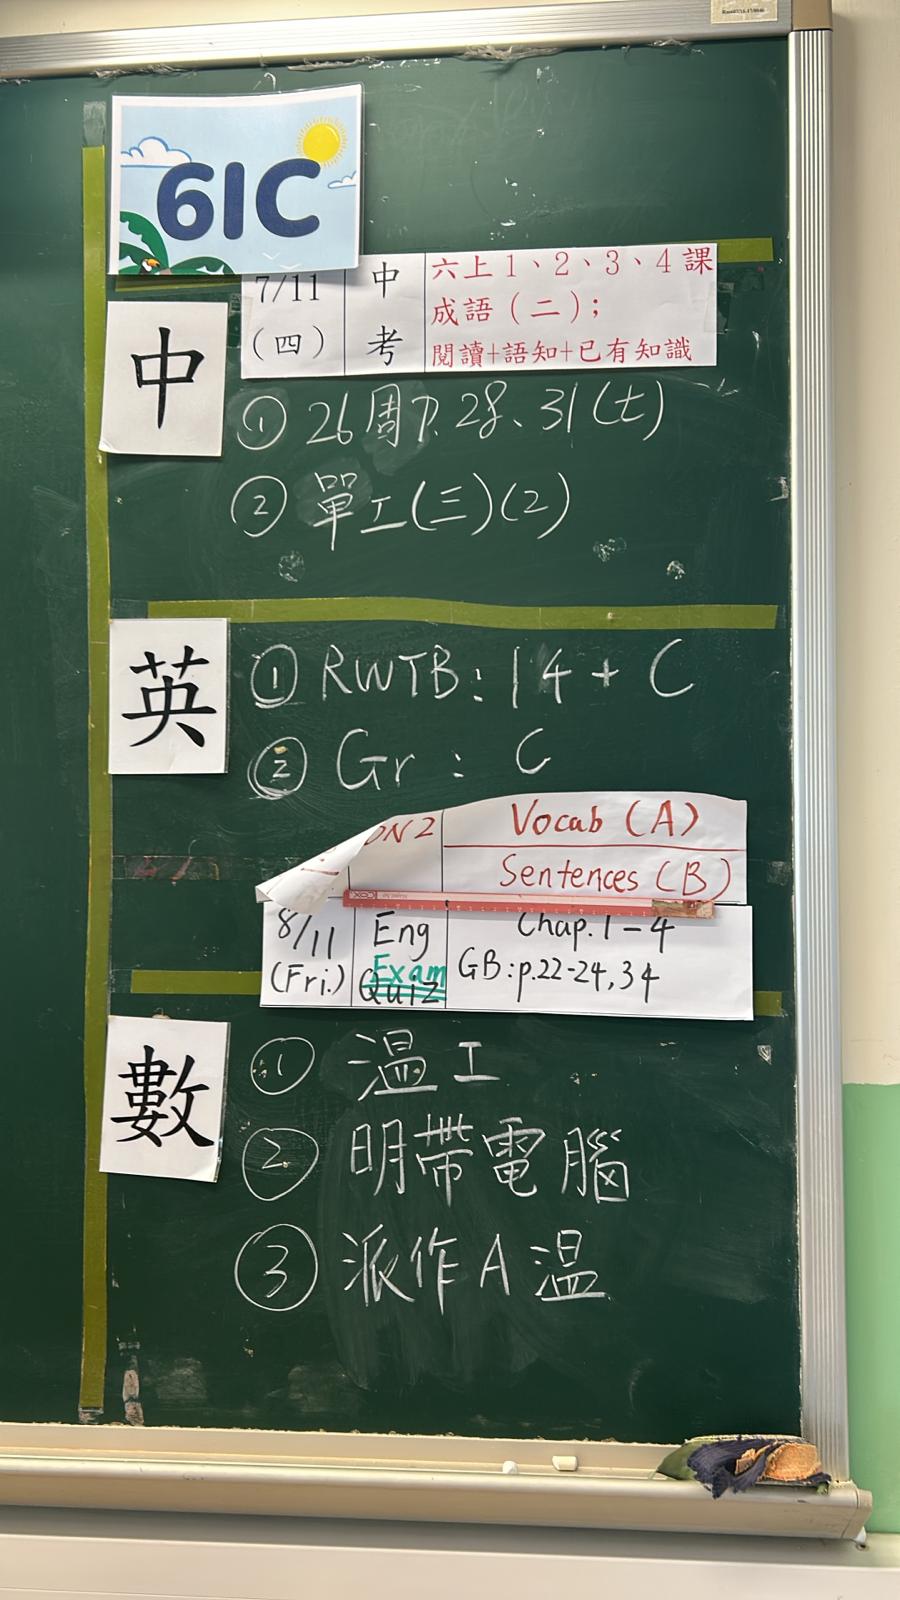 61C
7/11 (四) 中考 六上1、2、3、4課
成語（二）；
閱讀+語知+已有知識
中
① 26周P.28、31(土)
② 單工(三)(2)
英
① RWTB: 14 + C
② Gr : C
DN 2 Vocab (A)
Sentences (B)
8/11 (Fri.) Eng Exam Quiz Chap. 1-4
GB: p.22-24, 34
數
① 溫工
② 明帶電腦
③ 派作A溫